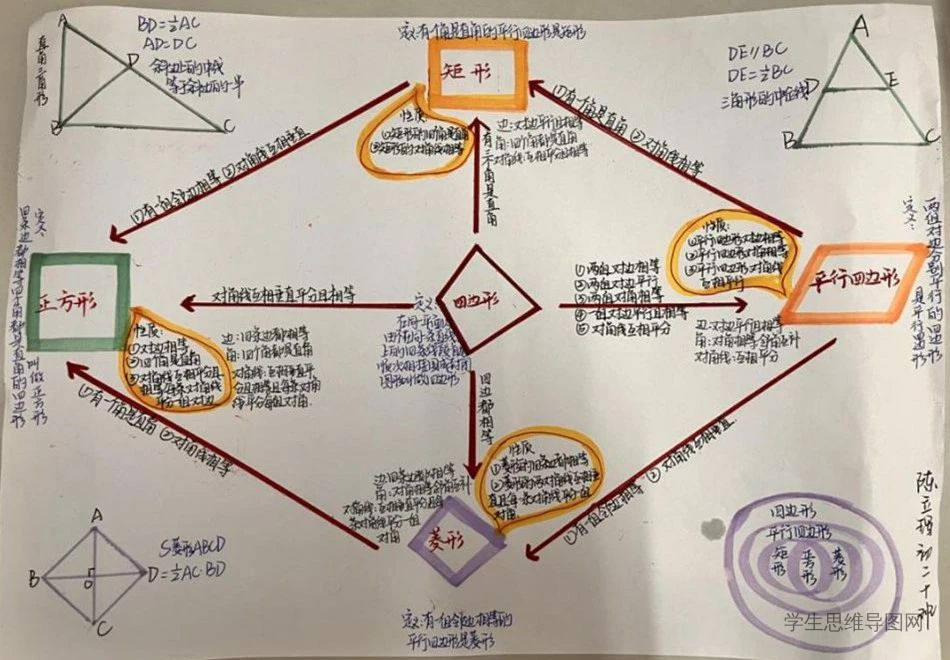 A
B
C
D
直角三角形
BD=½AC
AD=DC
斜边上的中线
等于斜边的一半
定义:有一个角是直角的平行四边形是矩形
矩形
性质:
①矩形的四个角是直角
②矩形的对角线相等
边:对边平行且相等
角:四个角都是直角
对角线:互相平分且相等
有三个角是直角
①有一组邻边相等 ②对角线互相垂直
①有一个角是直角 ②对角线相等
DE∥BC
DE=½BC
三角形的中位线
A
D
E
B
C
定义:
四条边都相等四个角都是直角的四边形
叫做正方形
正方形
性质:
①对边相等
②四个角是直角
③对角线互相平分且
平分一组对边
边:四条边都相等
角:四个角都是直角
对角线:互相垂直平
分且相等且每条对角
线平分每组对角
对角线互相垂直平分且相等
四边形
定义:
在同一平面
图形叫做四边形
①两组对边相等
②两组对边平行
③两组对角相等
④一组对边平行且相等
⑤对角线互相平分
性质:
①平行四边形对边相等
②平行四边形对角相等
③平行四边形对角线
互相平分
平行四边形
边:对边平行且相等
角:对角相等 邻角互补
对角线:互相平分
定义:
两组对边分别平行的四边形
是平行四边形
①有一个角是直角 ②对角线相等
四边都相等
①有一组邻边相等 ②对角线互相垂直
边:四条边都相等
角:对角相等邻角互补
对角线:互相垂直平分且每
条对角线平分一组
对角
菱形
性质
①菱形的四条边都相等
②菱形的两对角线互相垂
直且每一条对角线平分一组
对角
定义:有一组邻边相等的
平行四边形是菱形
A
B
O
D
C
S菱形ABCD
=½AC·BD
四边形
平行四边形
矩形
正方形
菱形
初二十班
学生思维导图网